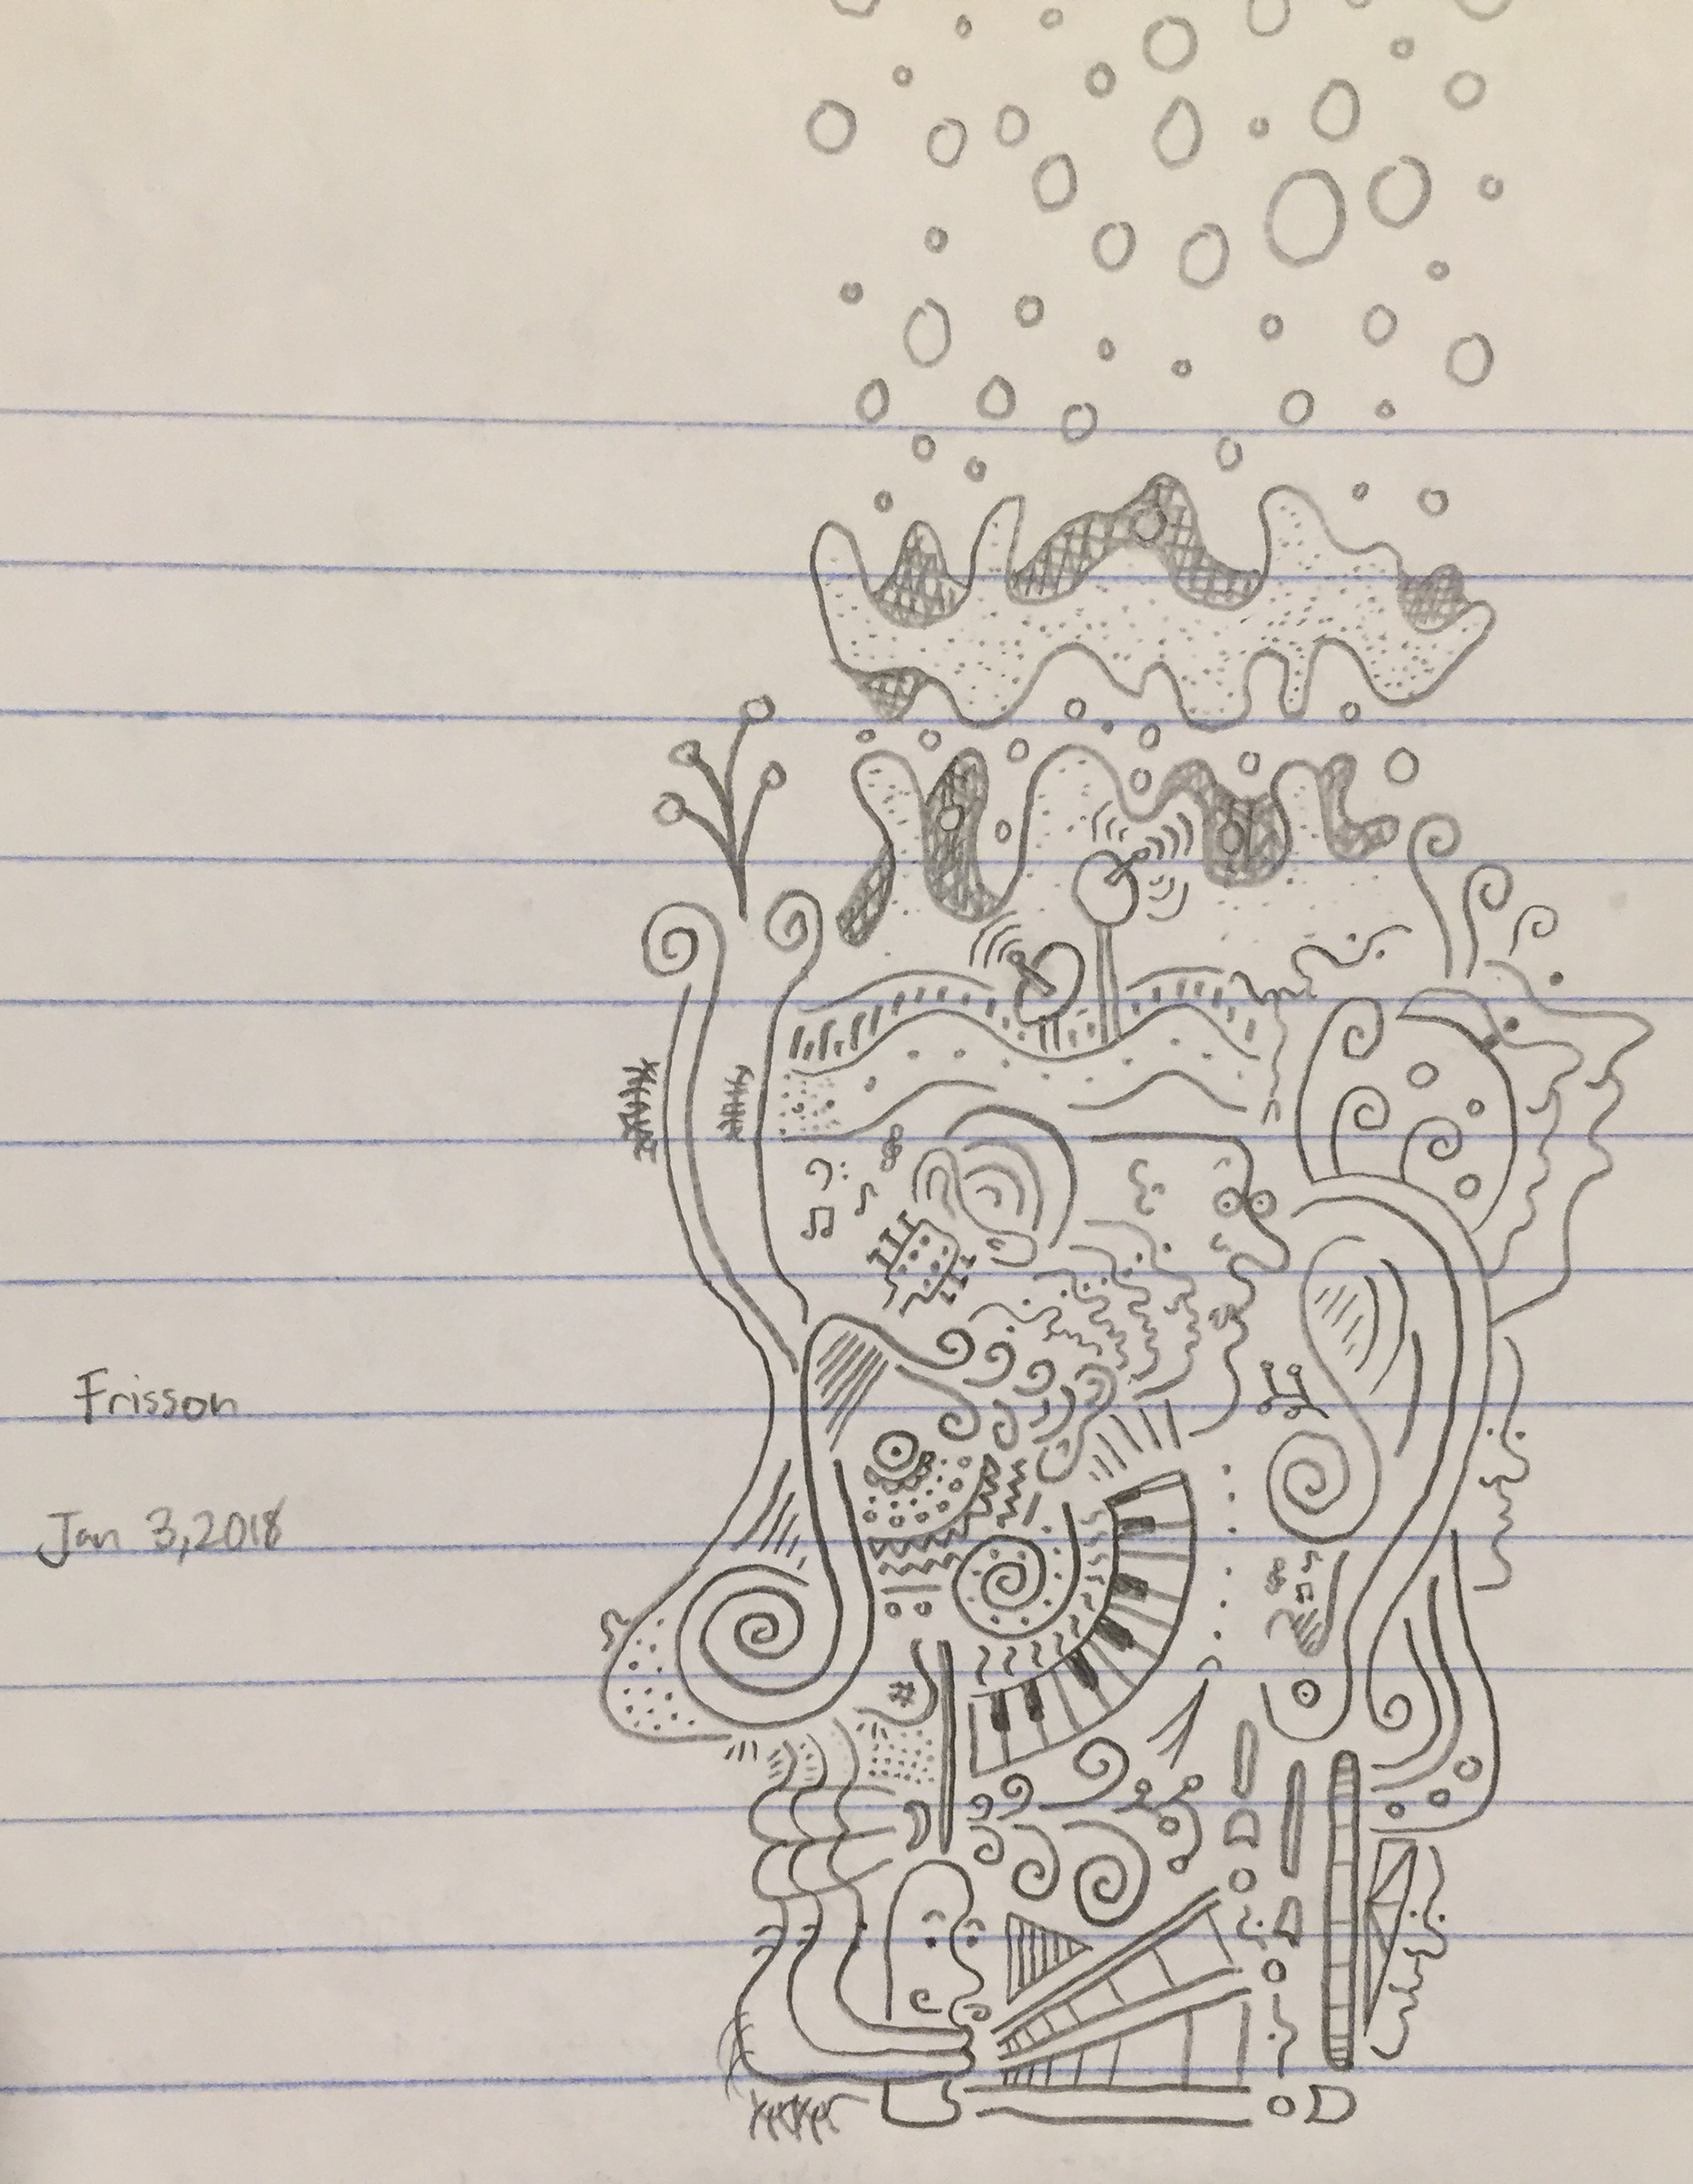 Frisson
Jan 3, 2018